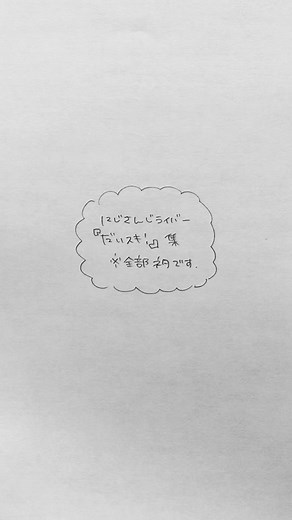 にじさんじライバー
『だいスキ!』集
※全部ネタです.